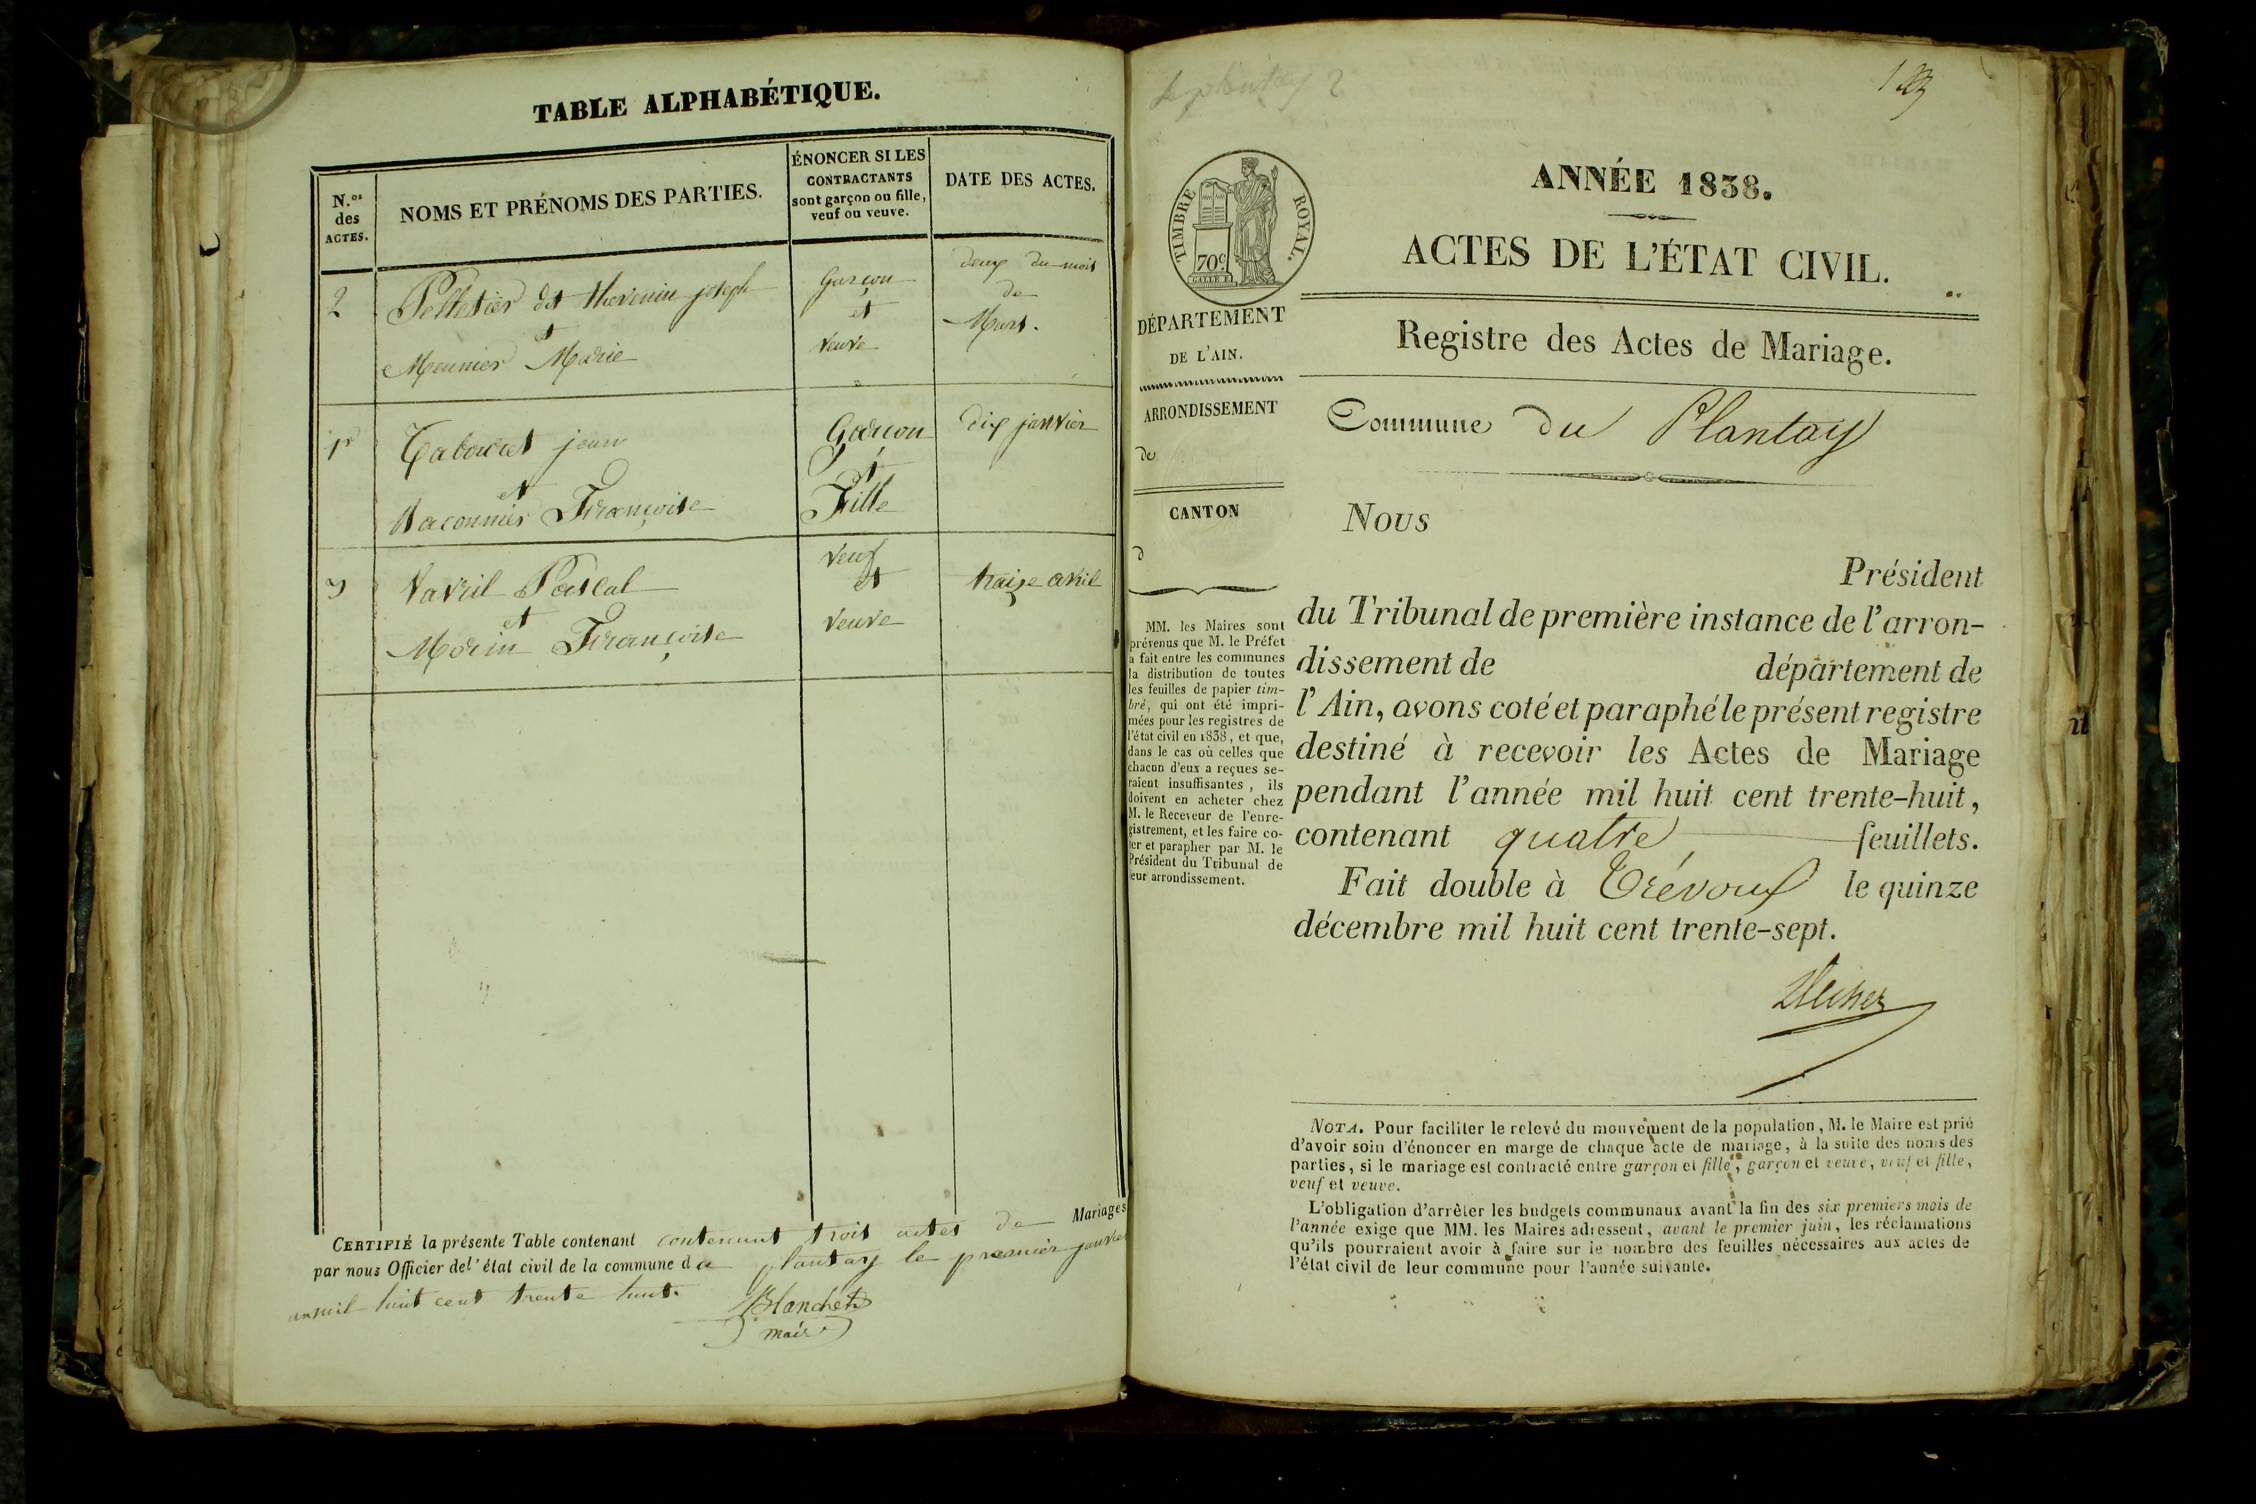 TABLE ALPHABÉTIQUE.
N.os des ACTES.
NOMS ET PRÉNOMS DES PARTIES.
ÉNONCER SI LES
CONTRACTANTS
sont garçon ou fille,
veuf ou veuve.
DATE DES ACTES.
2
Pelletier dit thevenin joseph
et
Meunier Marie
Garçon
et
veuve
deux du mois
de
Mars.
1r
Tabouret jean
et
Vaconnier Françoise
Garçon
et
Fille
dix janvier
3
Vavril Pascal
et
Morin Françoise
veuf
et
veuve
traize avril
CERTIFIÉ la présente Table contenant contenant trois actes de Mariages
par nous Officier de l'état civil de la commune du plantay le premier janvier
mil huit cent trente huit.
Blanchet
maire
Le plantay 2
TIMBRE ROYAL.
70c
ANNÉE 1838.
ACTES DE L'ÉTAT CIVIL.
DÉPARTEMENT
DE L'AIN.
ARRONDISSEMENT
de
CANTON
d
MM. les Maires sont
prévenus que M. le Préfet
a fait entre les communes
la distribution de toutes
les feuilles de papier tim-
bré, qui ont été impri-
mées pour les registres de
l'état civil en 1838, et que,
dans le cas où celles que
chacun d'eux a reçues se-
raient insuffisantes, ils
doivent en acheter chez
M. le Receveur de l'enre-
gistrement, et les faire co-
ter et parapher par M. le
Président du Tribunal de
leur arrondissement.
Registre des Actes de Mariage.
Commune du Plantay
Nous
Président
du Tribunal de première instance de l'arron-
dissement de département de
l'Ain, avons coté et paraphé le présent registre
destiné à recevoir les Actes de Mariage
pendant l'année mil huit cent trente-huit,
contenant quatre feuillets.
Fait double à Trévoux le quinze
décembre mil huit cent trente-sept.
NOTA. Pour faciliter le relevé du mouvement de la population, M. le Maire est prié
d'avoir soin d'énoncer en marge de chaque acte de mariage, à la suite des noms des
parties, si le mariage est contracté entre garçon et fille, garçon et veuve, veuf et fille,
veuf et veuve.
L'obligation d'arrêter les budgets communaux avant la fin des six premiers mois de
l'année exige que MM. les Maires adressent, avant le premier juin, les réclamations
qu'ils pourraient avoir à faire sur le nombre des feuilles nécessaires aux actes de
l'état civil de leur commune pour l'année suivante.